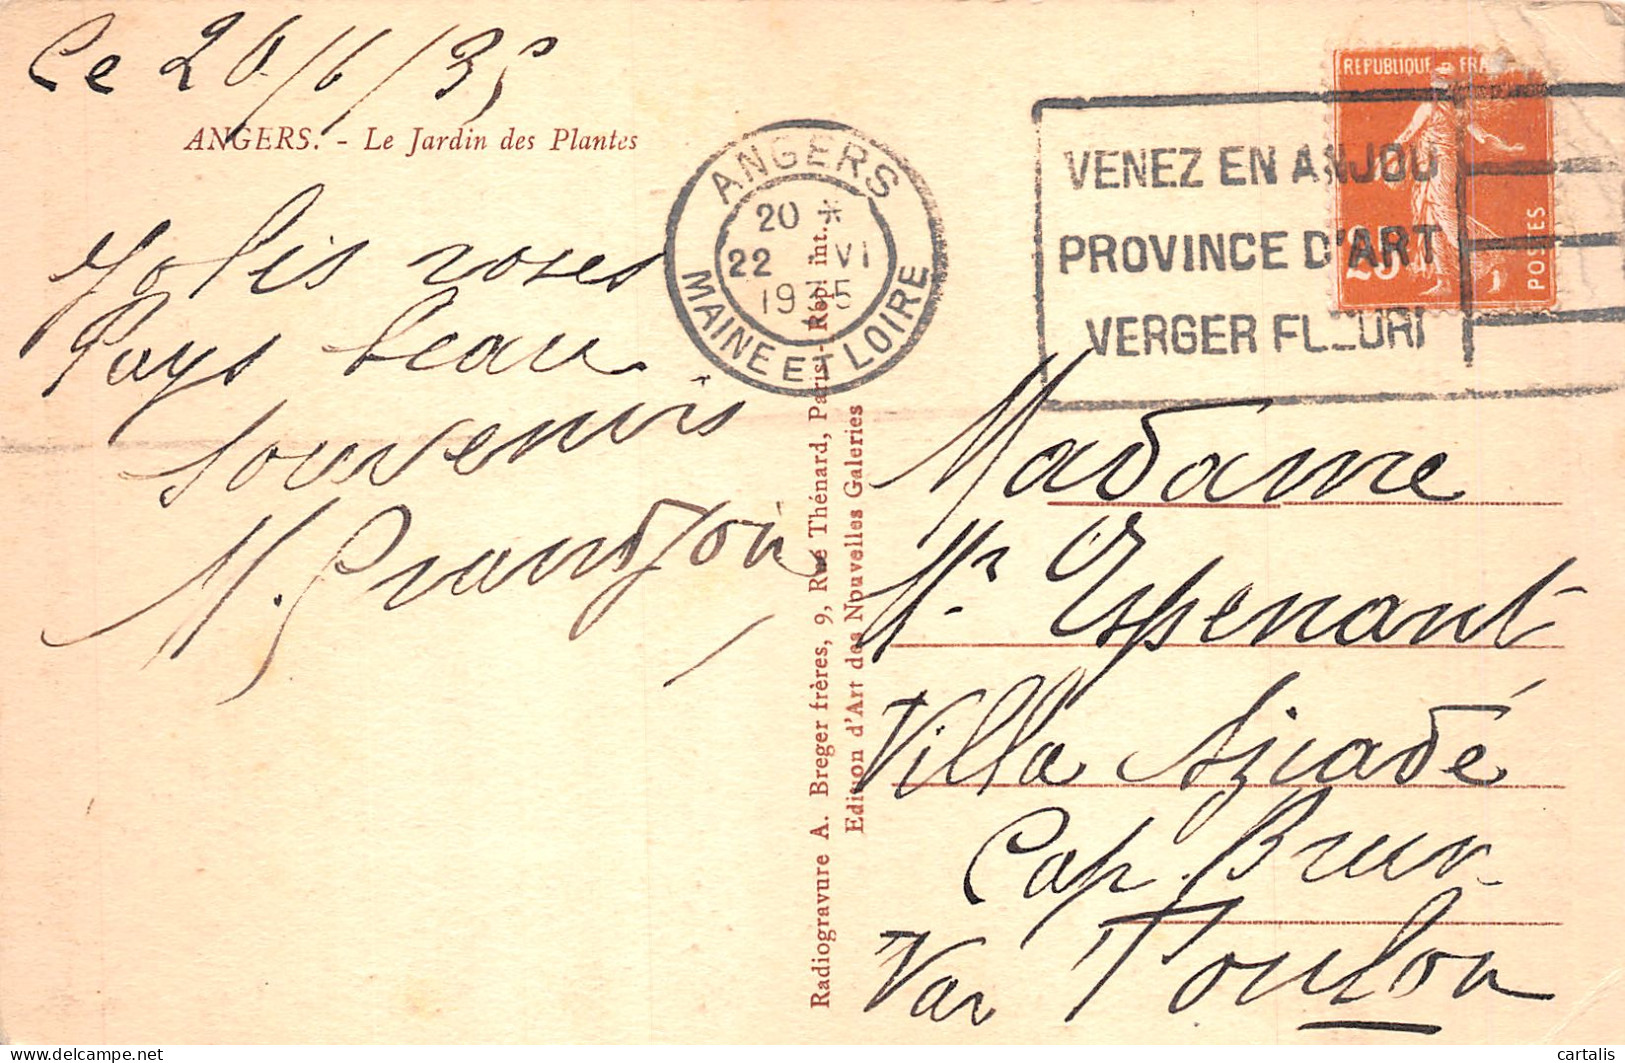 Ce 20/6/35
ANGERS. - Le Jardin des Plantes
Jolis roses
Pays beau
Souvenirs
ANGERS
20 *
22 VI
1935
MAINE ET LOIRE
VENEZ EN ANJOU
PROVINCE D'ART
VERGER FLEURI
REPUBLIQUE FRA
25
POSTES
Radiogravure A. Breger frères, 9, Rue Thénard, Paris - Repr. int.
Edition d'Art des Nouvelles Galeries
Madame
Espenant
Villa
Cap. Brun
Var Toulon
cartalis
delcampe.net